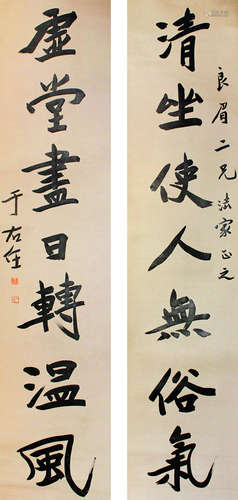 良眉二兄法家正之
清坐使人無俗氣
虛堂盡日轉温風
于右任